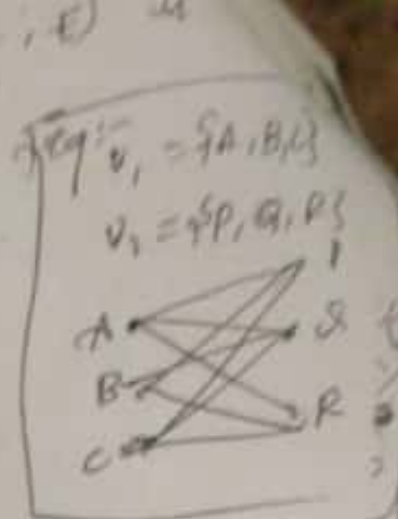 , E)
eg:-
V₁ = {A, B, C}
V₂ = {P, Q, R}
P
A
Q
B
R
C